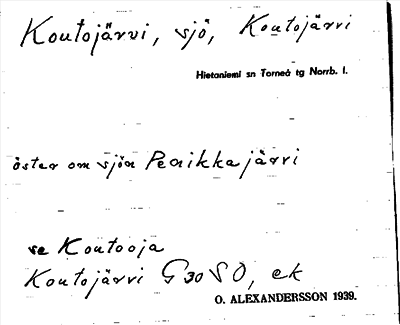 Koutojärvi, sjö, Koutojärvi
Hietaniemi sn Torneå tg Norrb. l.
öster om sjön Penikkajärvi
se Koutooja
Koutojärvi G30SO, ek
O. ALEXANDERSSON 1939.